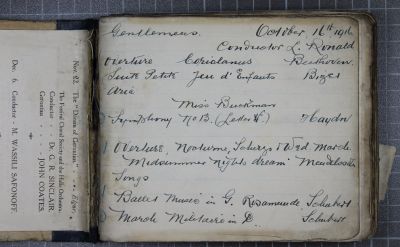 Gentlemens. October, 16th 1916
Conductor L. Ronald
Overture Coriolanus Beethoven.
Suite Petite Jeu d'Enfants Bizet
Aria
Miss Buckman
Symphony No 13. (Letter V.) Haydn
Overture, Nocturne, Scherzo & Wed. March.
Midsummer nights dream Mendelssohn
Songs
Ballet Music in G. Rosamunde. Schubert
March Militaire in D. Schubert
Nov. 22. The "Dream of Gerontius." Elgar.
The Festival Choral Society and the Hallé Orchestra.
Conductor - Dr. G. R. SINCLAIR.
Gerontius - JOHN COATES.
Dec. 6. Conductor - M. WASSILI SAFONOFF.